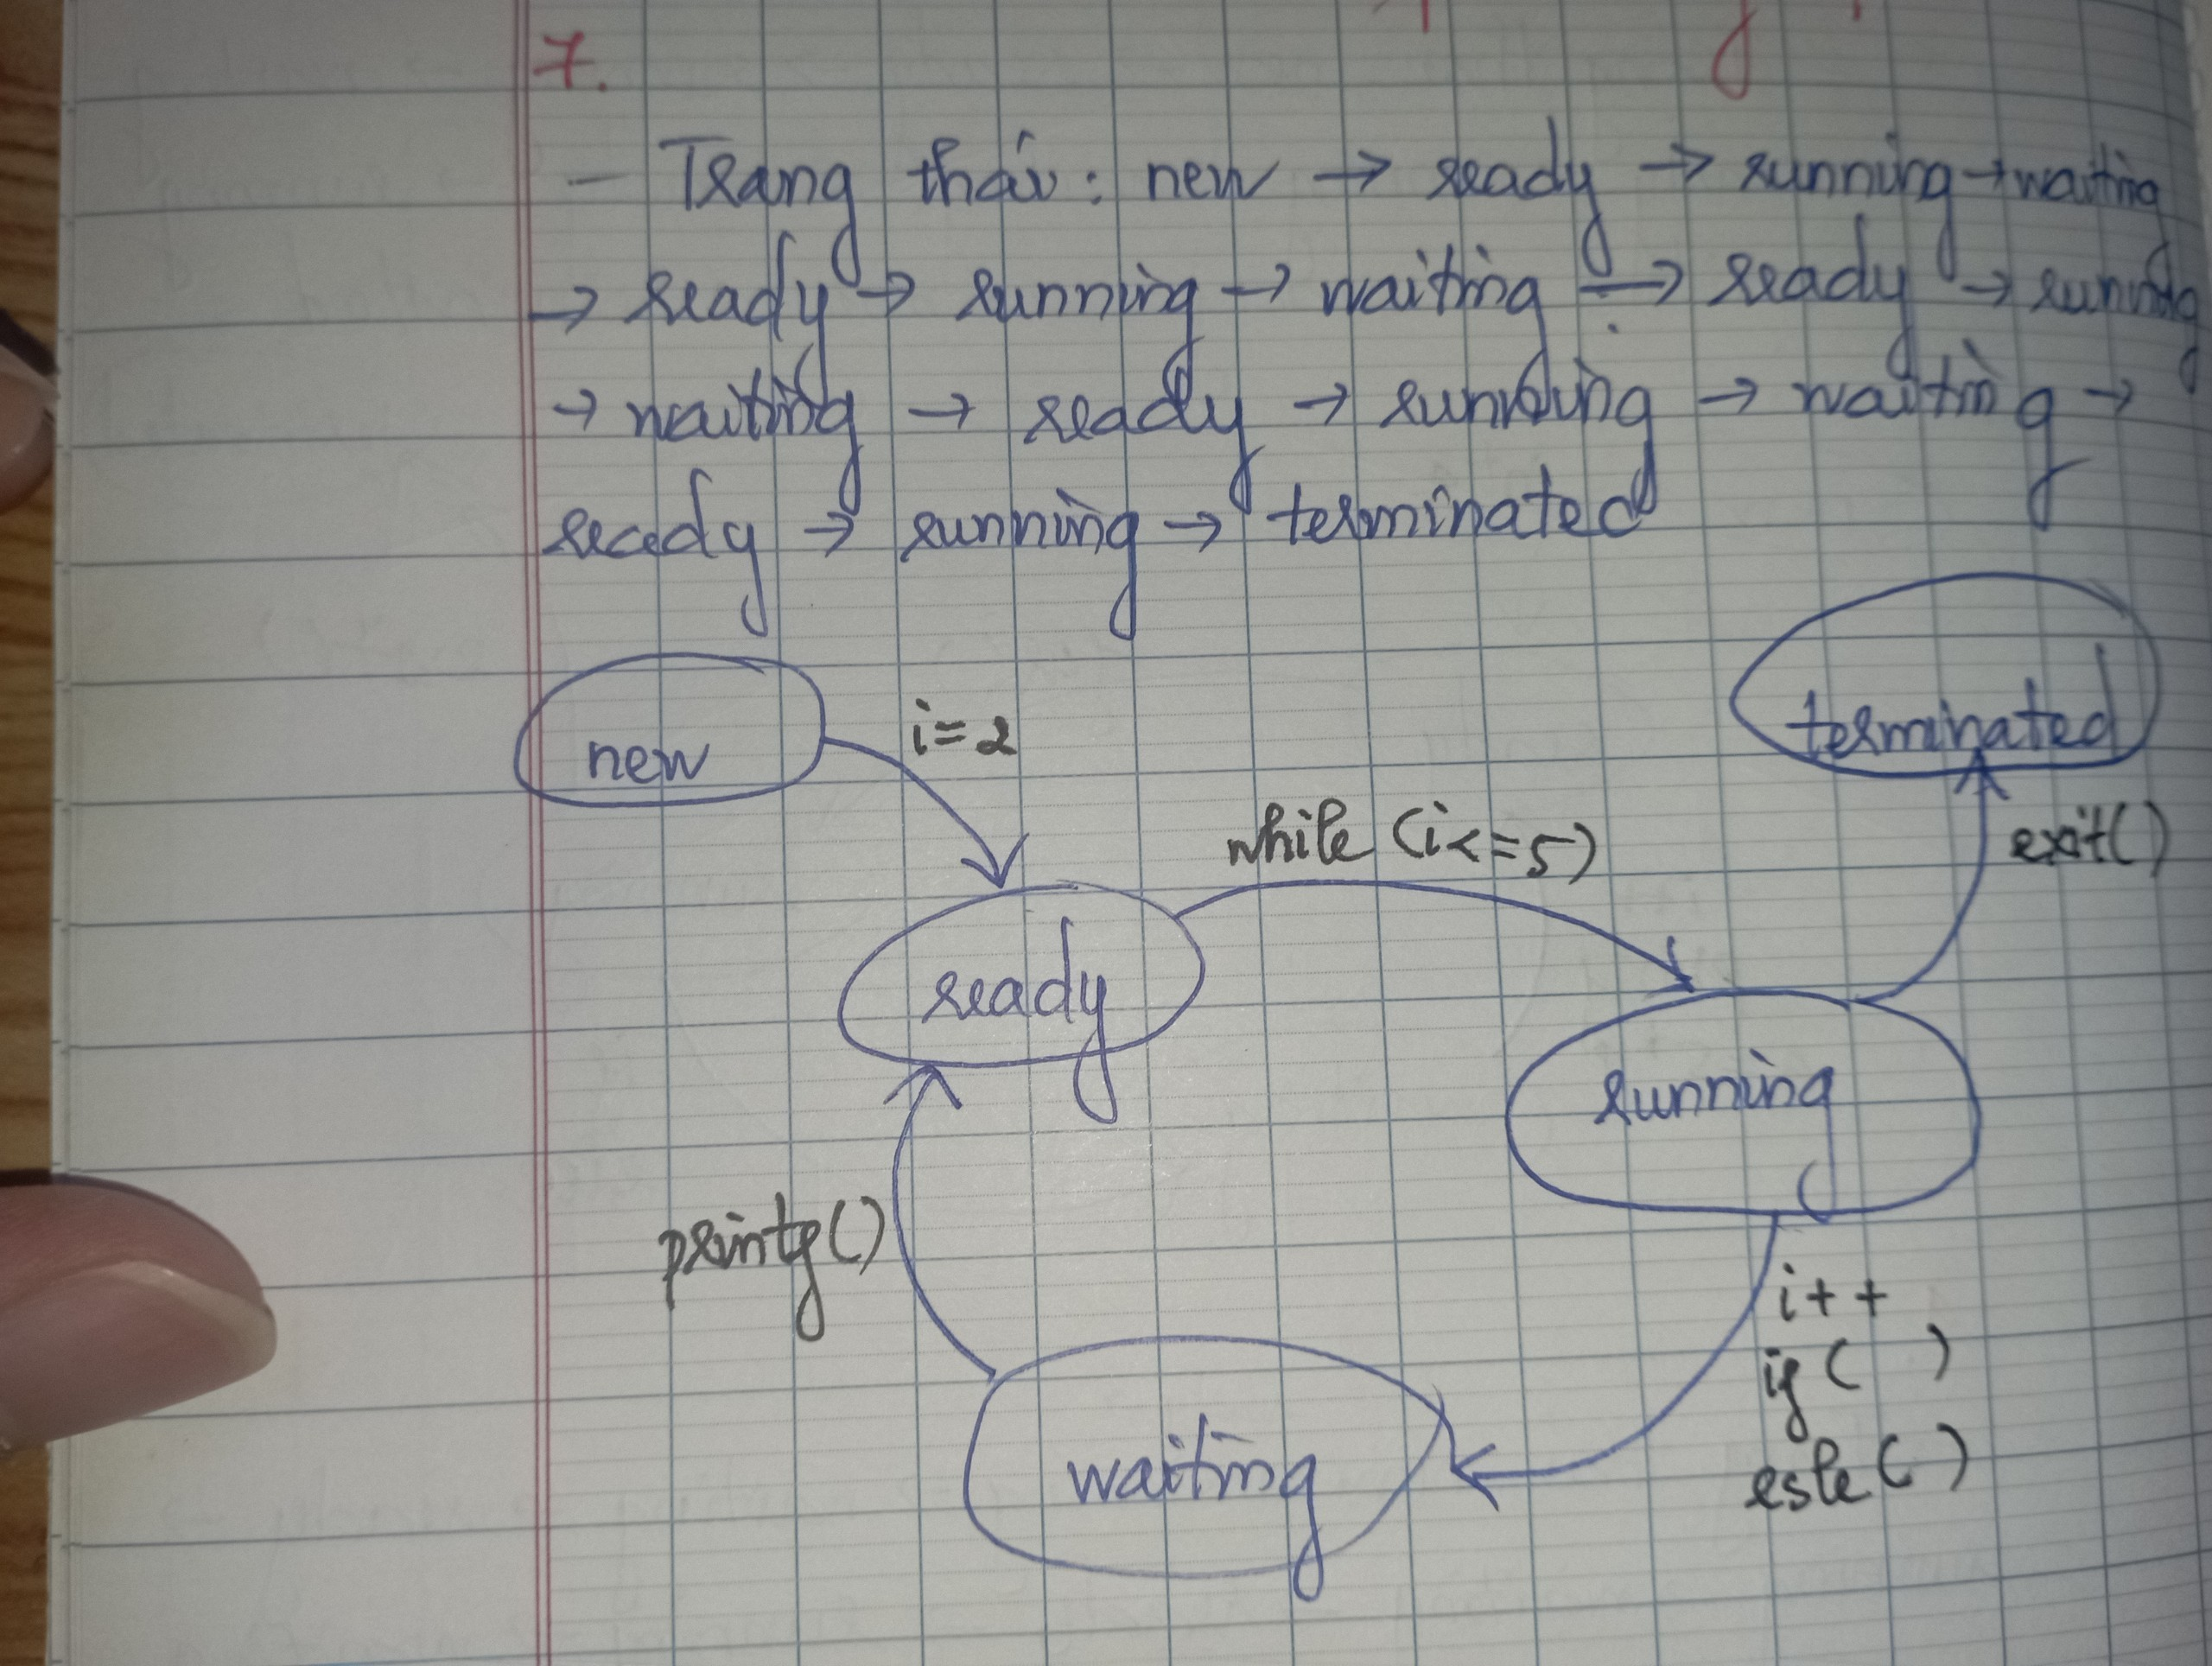 7.
- Trạng thái: new → ready → running → waiting
→ ready → running → waiting → ready → running
→ waiting → ready → running → waiting →
ready → running → terminated
new
i=2
terminated
while (i<=5)
exit()
ready
running
printf()
i++
if ( )
esle ( )
waiting